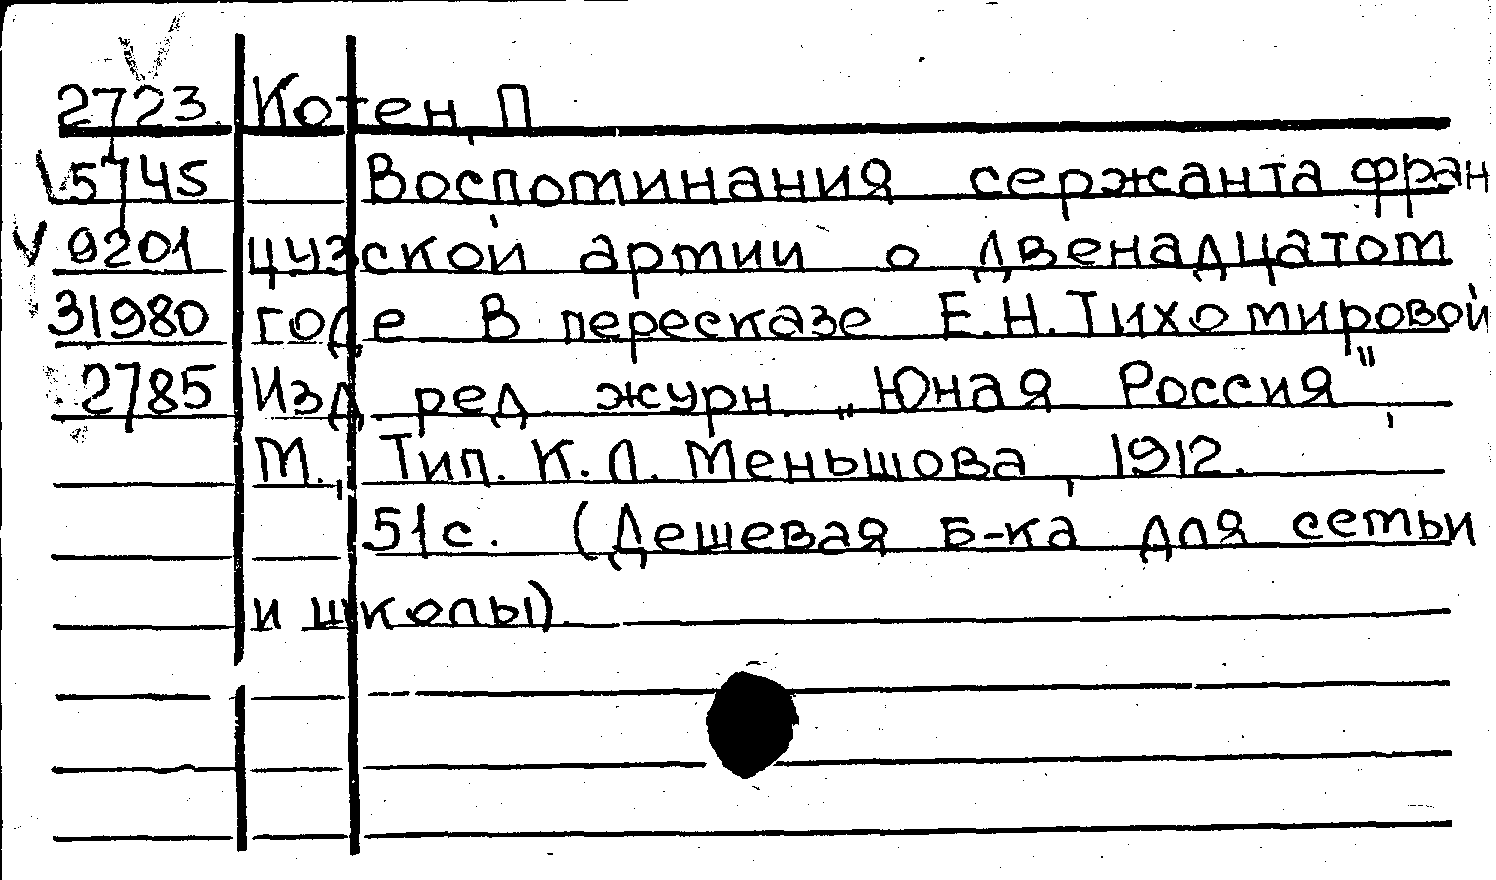 2723. Котен, П
5745 Воспоминания сержанта фран
9201 цузской армии о двенадцатом
31980 годе В пересказе Е.Н.Тихомировой
2785 Изд ред журн. „Юная Россия",
М., Тип. К.Л. Меньшова, 1912.
51с. (Дешевая б-ка для семьи
и школы).